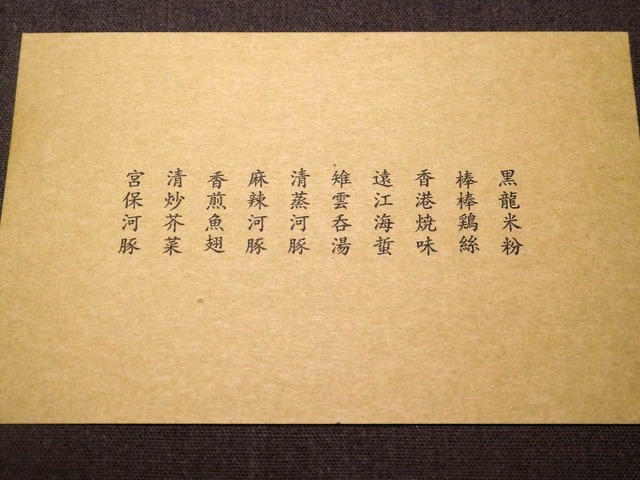 黒龍米粉
棒棒鶏絲
香港焼味
遠江海蜇
雉雲呑湯
清蒸河豚
麻辣河豚
香煎魚翅
清炒芥菜
宮保河豚